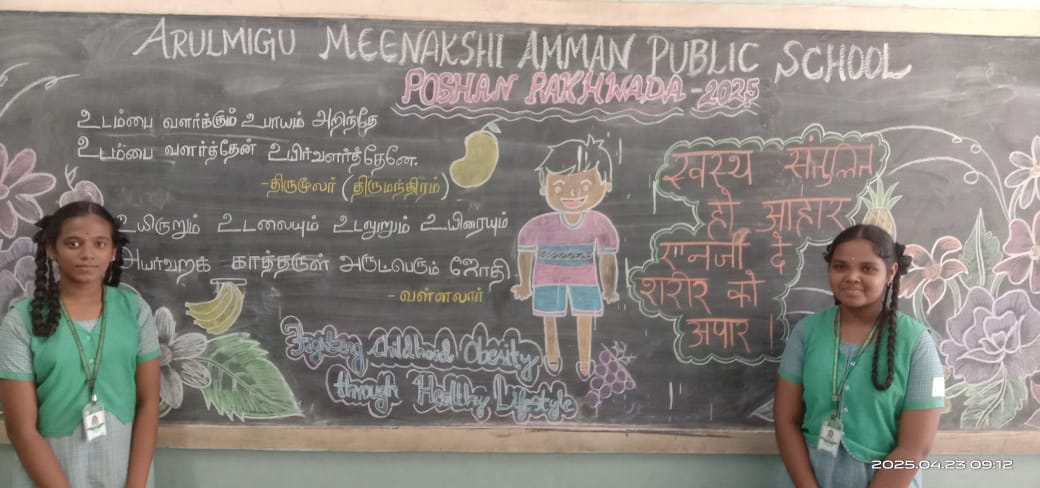 ARULMIGU MEENAKSHI AMMAN PUBLIC SCHOOL
POSHAN PAKHWADA - 2025
உடம்பை வளர்க்கும் உபாயம் அறிந்தே
உடம்பை வளர்த்தேன் உயிர்வளர்த்தேனே.
-திருமூலர் (திருமந்திரம்)
உயிருறும் உடலையும் உடலுறும் உயிரையும்
அயர்வறக் காத்தருள் அருட்பெரும் ஜோதி.
- வள்ளலார்
Fighting Childhood Obesity
through Healthy Lifestyle
स्वस्थ संतुलित
हो आहार
एनर्जी दे
शरीर को
अपार |
2025.04.23 09:12